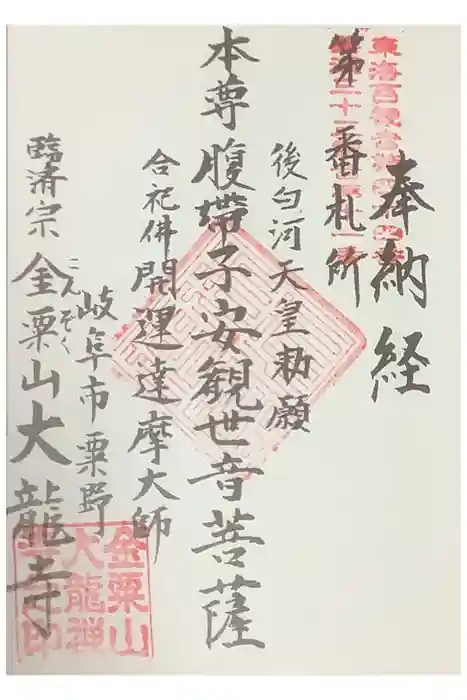 奉納経
東海百観音
第一番札所
後白河天皇勅願
本尊腹帯子安観世音菩薩
合祀佛開運達摩大師
岐阜市粟野
臨済宗金粟山大龍寺
こんぞく
金粟山
大龍禅
寺之印